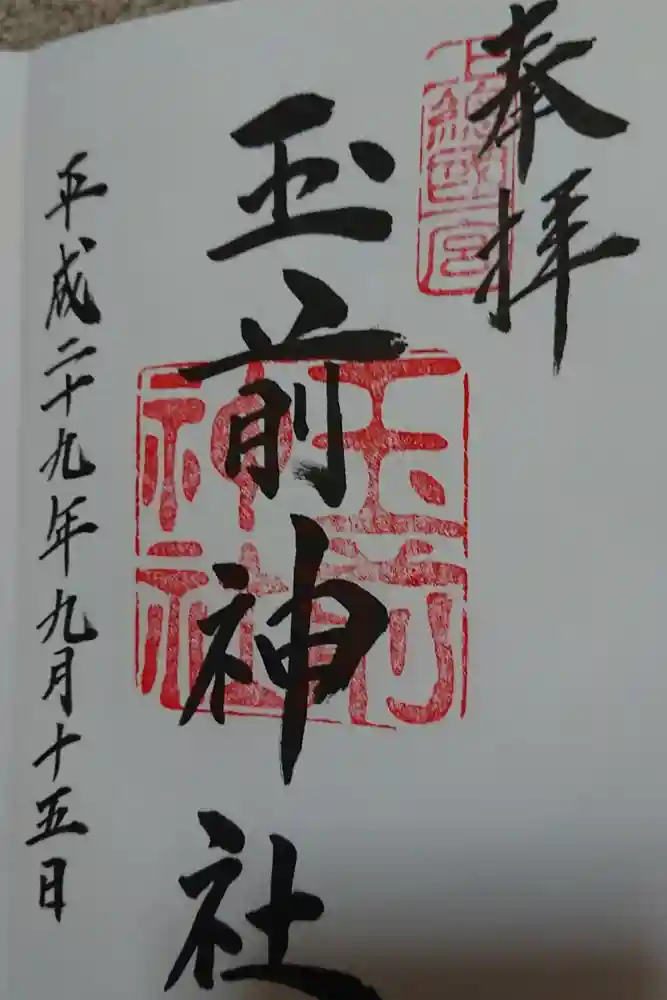 奉拝
上総國一宮
玉前神社
玉前神社
平成二十九年九月十五日